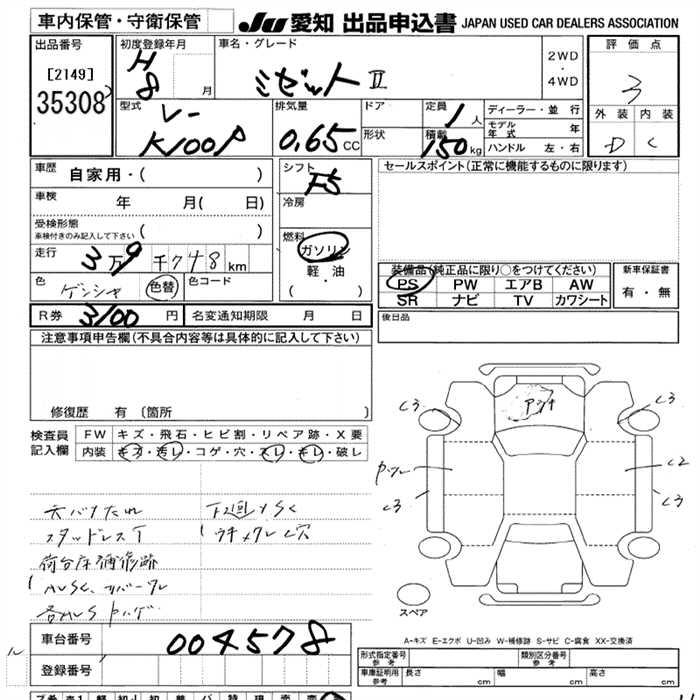 車内保管・守衛保管
JU 愛知 出品申込書 JAPAN USED CAR DEALERS ASSOCIATION
出品番号
[2149]
35308
初度登録年月
H
8 月
車名・グレード
ミゼットⅡ
2WD
・
4WD
評価点
3
外装 内装
D C
型式
V-
K100P
排気量
0.65 CC
ドア
形状
定員
1人
積載
150kg
ディーラー・並行
モデル年式 年
ハンドル 左・右
車歴 自家用・( )
車検 年 月( 日)
受検形態
車検付きのみ記入して下さい ( )
走行 3万9千748km
色 ゲンシャ 色替 色コード
R券 3100円 名変通知期限 月 日
シフト
F5
冷房
燃料
ガソリン
軽・油
( ・ )
セールスポイント(正常に機能するものに限ります)
装備品(純正品に限り○をつけてください)
PS PW エアB AW
SR ナビ TV カワシート
新車保証書
有・無
後日品
注意事項申告欄(不具合内容等は具体的に記入して下さい)
修復歴 有 〔箇所 〕
検査員
記入欄
FW キズ・飛石・ヒビ割・リペア跡・X要
内装 キズ・汚レ・コゲ・穴・スレ・キレ・破レ
天バリたれ
スタッドレスT
荷台床補修跡
下回りSC
C3
C3
C2
C3
C3
スペア
A-キズ E-エクボ U-凹み W-補修跡 S-サビ C-腐食 XX-交換済
車台番号 004578
登録番号
形式指定番号 参考
類別区分番号 参考
車庫証明用 参考 長さ cm 幅 cm 高さ cm